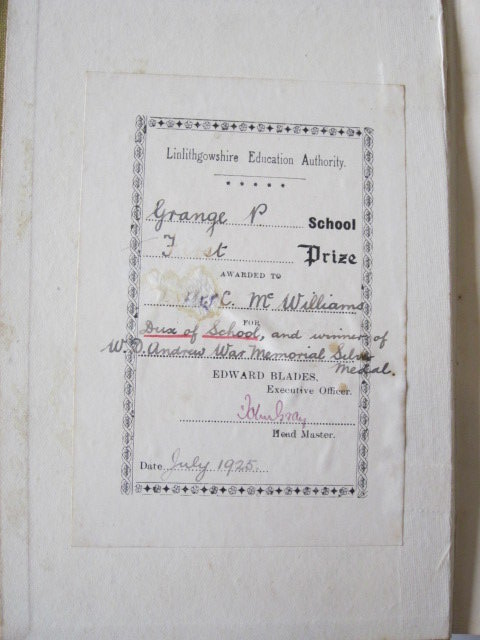 Linlithgowshire Education Authority.
Grange P. School
F st Prize
AWARDED TO
C. Mc Williams
FOR
Dux of School, and winner of
W. D. Andrew War Memorial Silver
Medal.
EDWARD BLADES,
Executive Officer.
John Gray
Head Master.
Date July 1925.